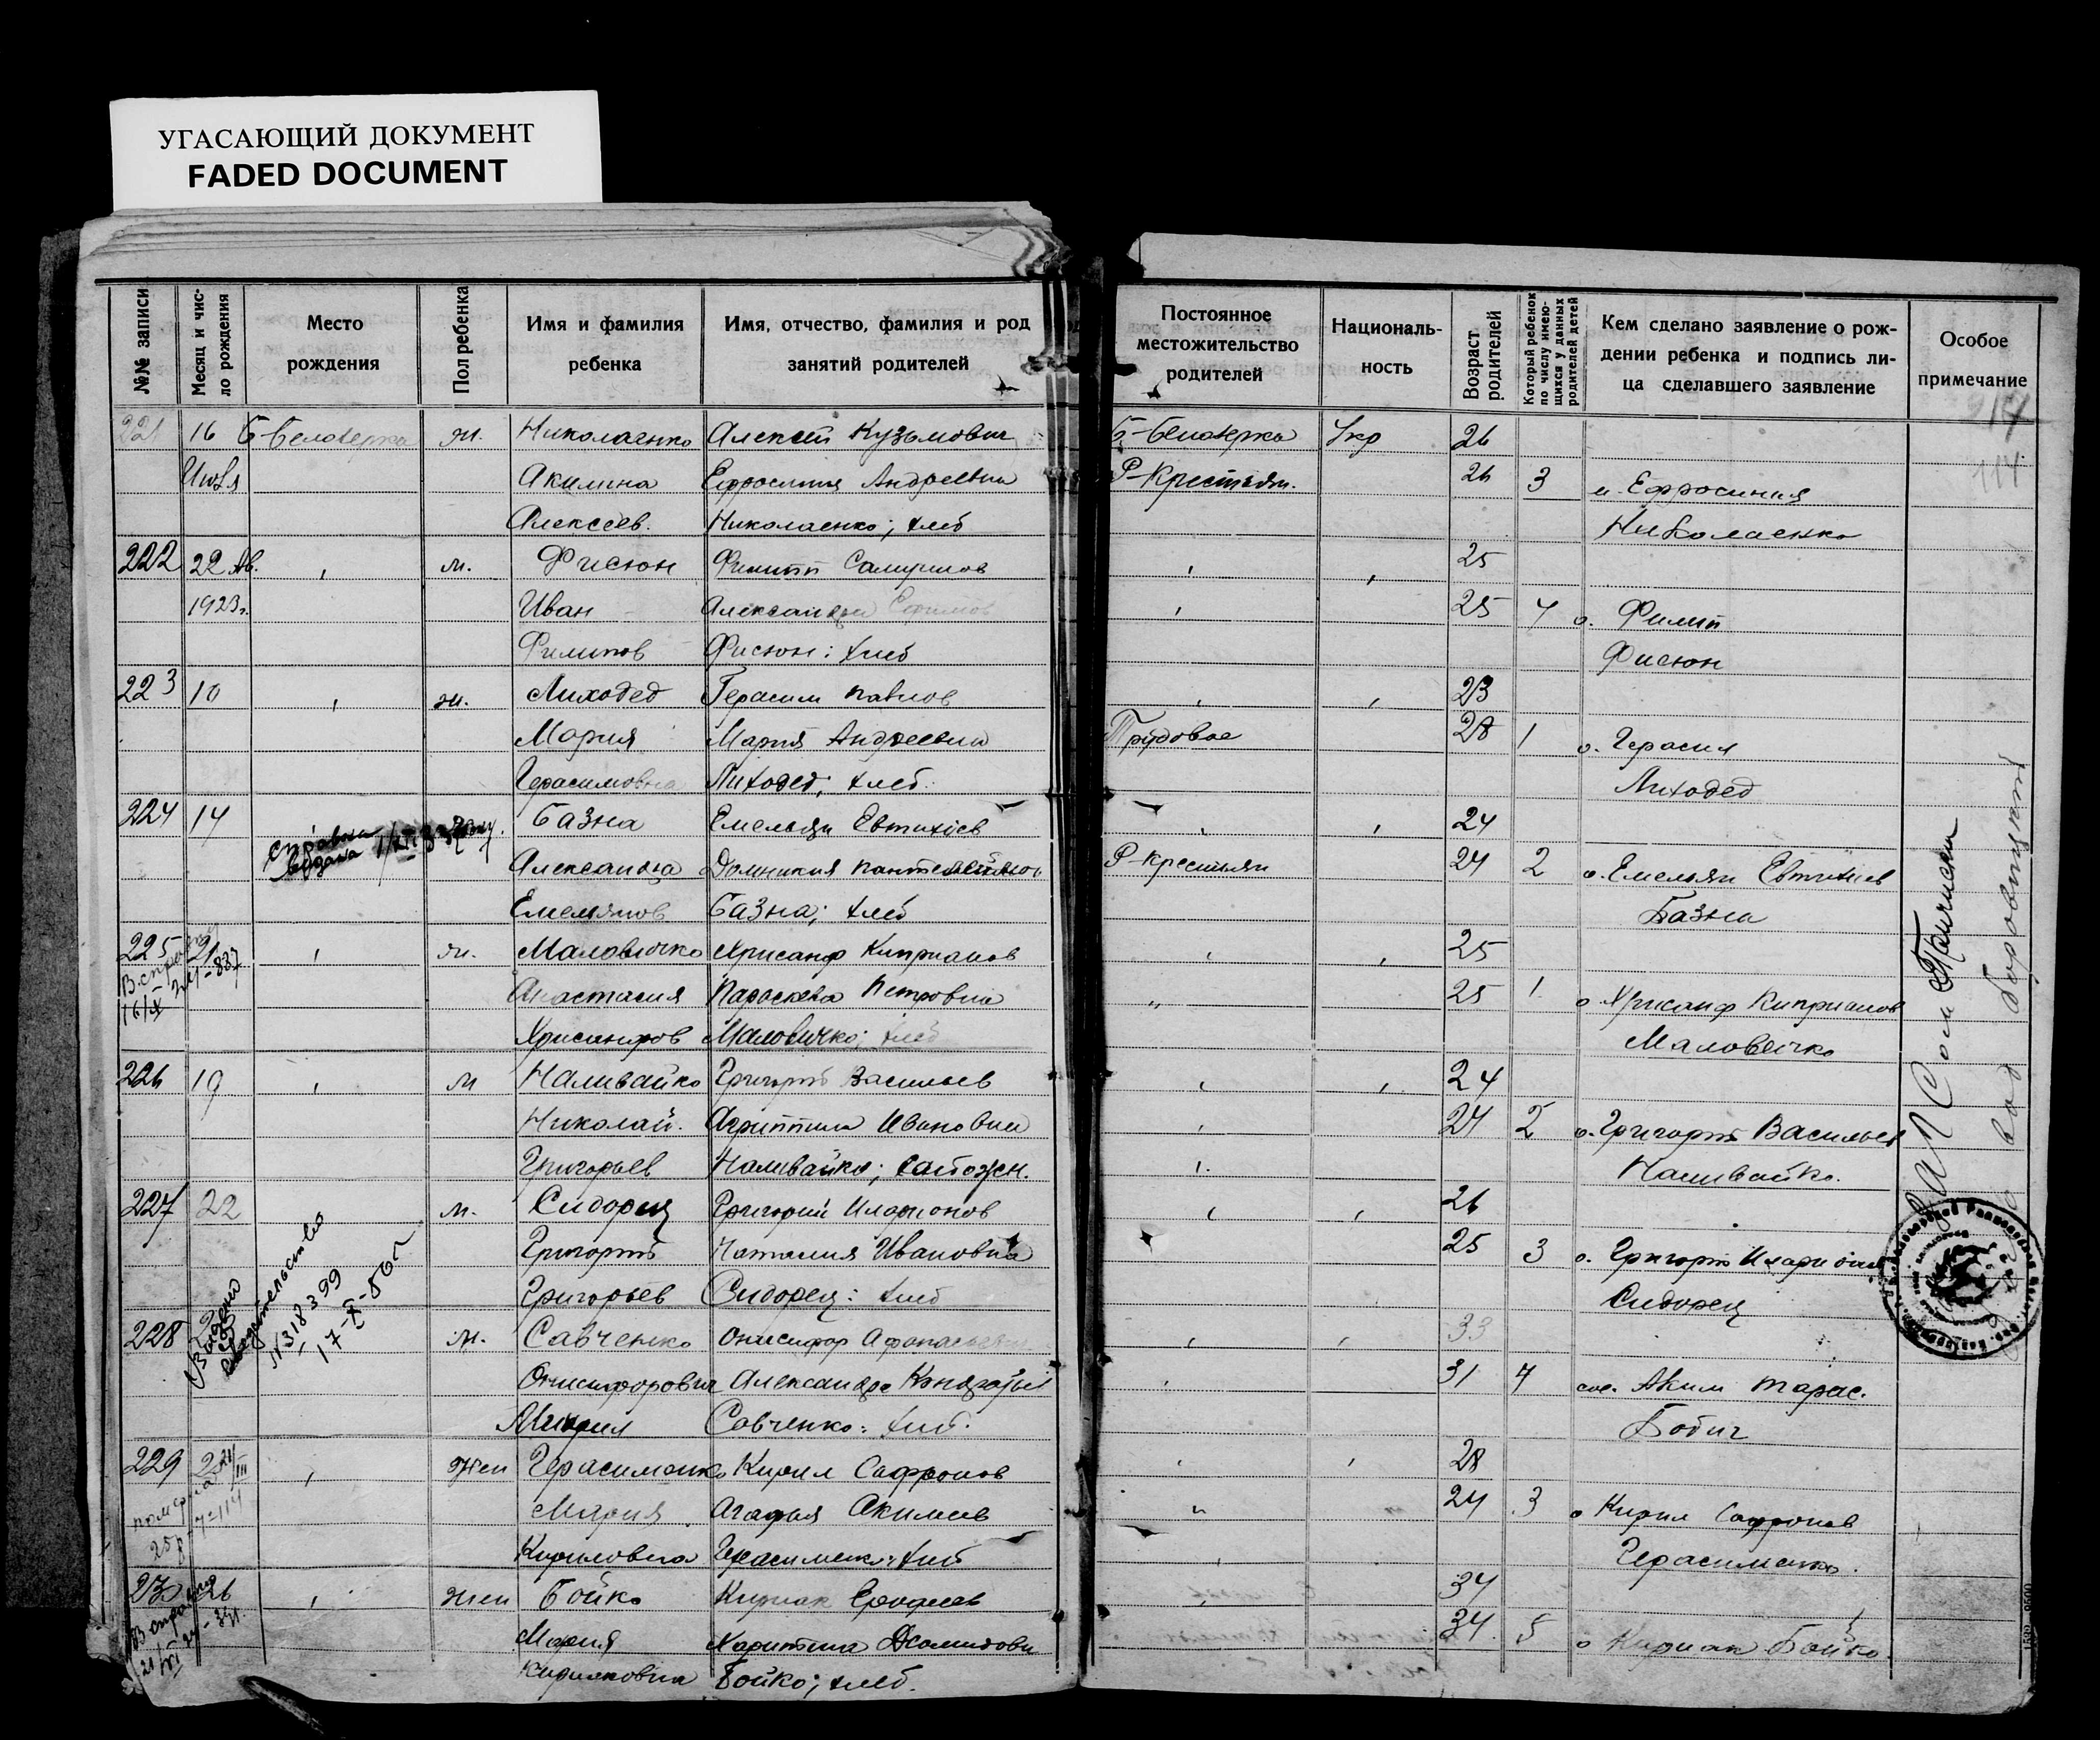 УГАСАЮЩИЙ ДОКУМЕНТ
FADED DOCUMENT
№№ записи
Месяц и чис-
ло рождения
Место
рождения
Пол ребенка
Имя и фамилия
ребенка
Имя, отчество, фамилия и род
занятий родителей
Постоянное
местожительство
родителей
Националь-
ность
Возраст
родителей
Который ребенок
по числу имею-
щихся у данных
родителей детей
Кем сделано заявление о рож-
дении ребенка и подпись ли-
ца сделавшего заявление
Особое
примечание
221 16 Б-Белозерка ж. Николаенко Алексей Кузьмович Б-Белозерка Укр 26
Июля Акилина Ефросиния Андреевна Р-Крестьян. 26 3 м. Ефросиния
Алексеев. Николаенко; хлеб Николаенко
222 22 Ав. м. Фисюн Филипп Самуилов 25
1923г. Иван Александра Ефимов 25 4 о. Филип
Филипов Фисюн: хлеб Фисюн
223 10 ж. Лиходед Герасим Павлов 23
Мария Мария Андреевна Трудовое 28 1 о. Герасим
Герасимовна Лиходед; хлеб. Лиходед
224 14 Базна Емельян Евтихиев 24
справка
видана
Александра Домникия Р-крестьян 24 2 о. Емельян Евтихиев
Емельянов Базна; хлеб Базна
225 21 ж. Маловичко Хрисанф Киприанов 25
Анастасия Параскева Петровна 25 1 о. Хрисанф Киприанов
Хрисанфов Маловичко; хлеб Маловичко
226 19 м Наливайко Григорий Васильев 24
Николай. Агриппина Ивановна 24 2 о. Григорий Васильев
Григорьев Наливайко; сапожн. Наливайко.
227 22 м. Сидорец Григорий Иларионов 26
Григорий Наталия Ивановна 25 3 о. Григорий Иларионов
Григорьев Сидорец: хлеб Сидорец
Выдано
свидетельство
№318399
17-X-56г
228 м. Савченко Онисифор Афанасьев 33
Онисифорович Александра 31 4 сос. Аким Тарас.
Савченко: хлеб. Бабич
229 жен Герасименко Кирил Сафронов 28
Мария Агафья Акимов 24 3 о Кирил Сафронов
Кириловна Герасименко: хлеб Герасименко.
померла
230 26 жен Бойко Кириак Ерофеев 34
Мария Харитина 34 5 о Кириак Бойко.
Кириаковна Бойко; хлеб.
114